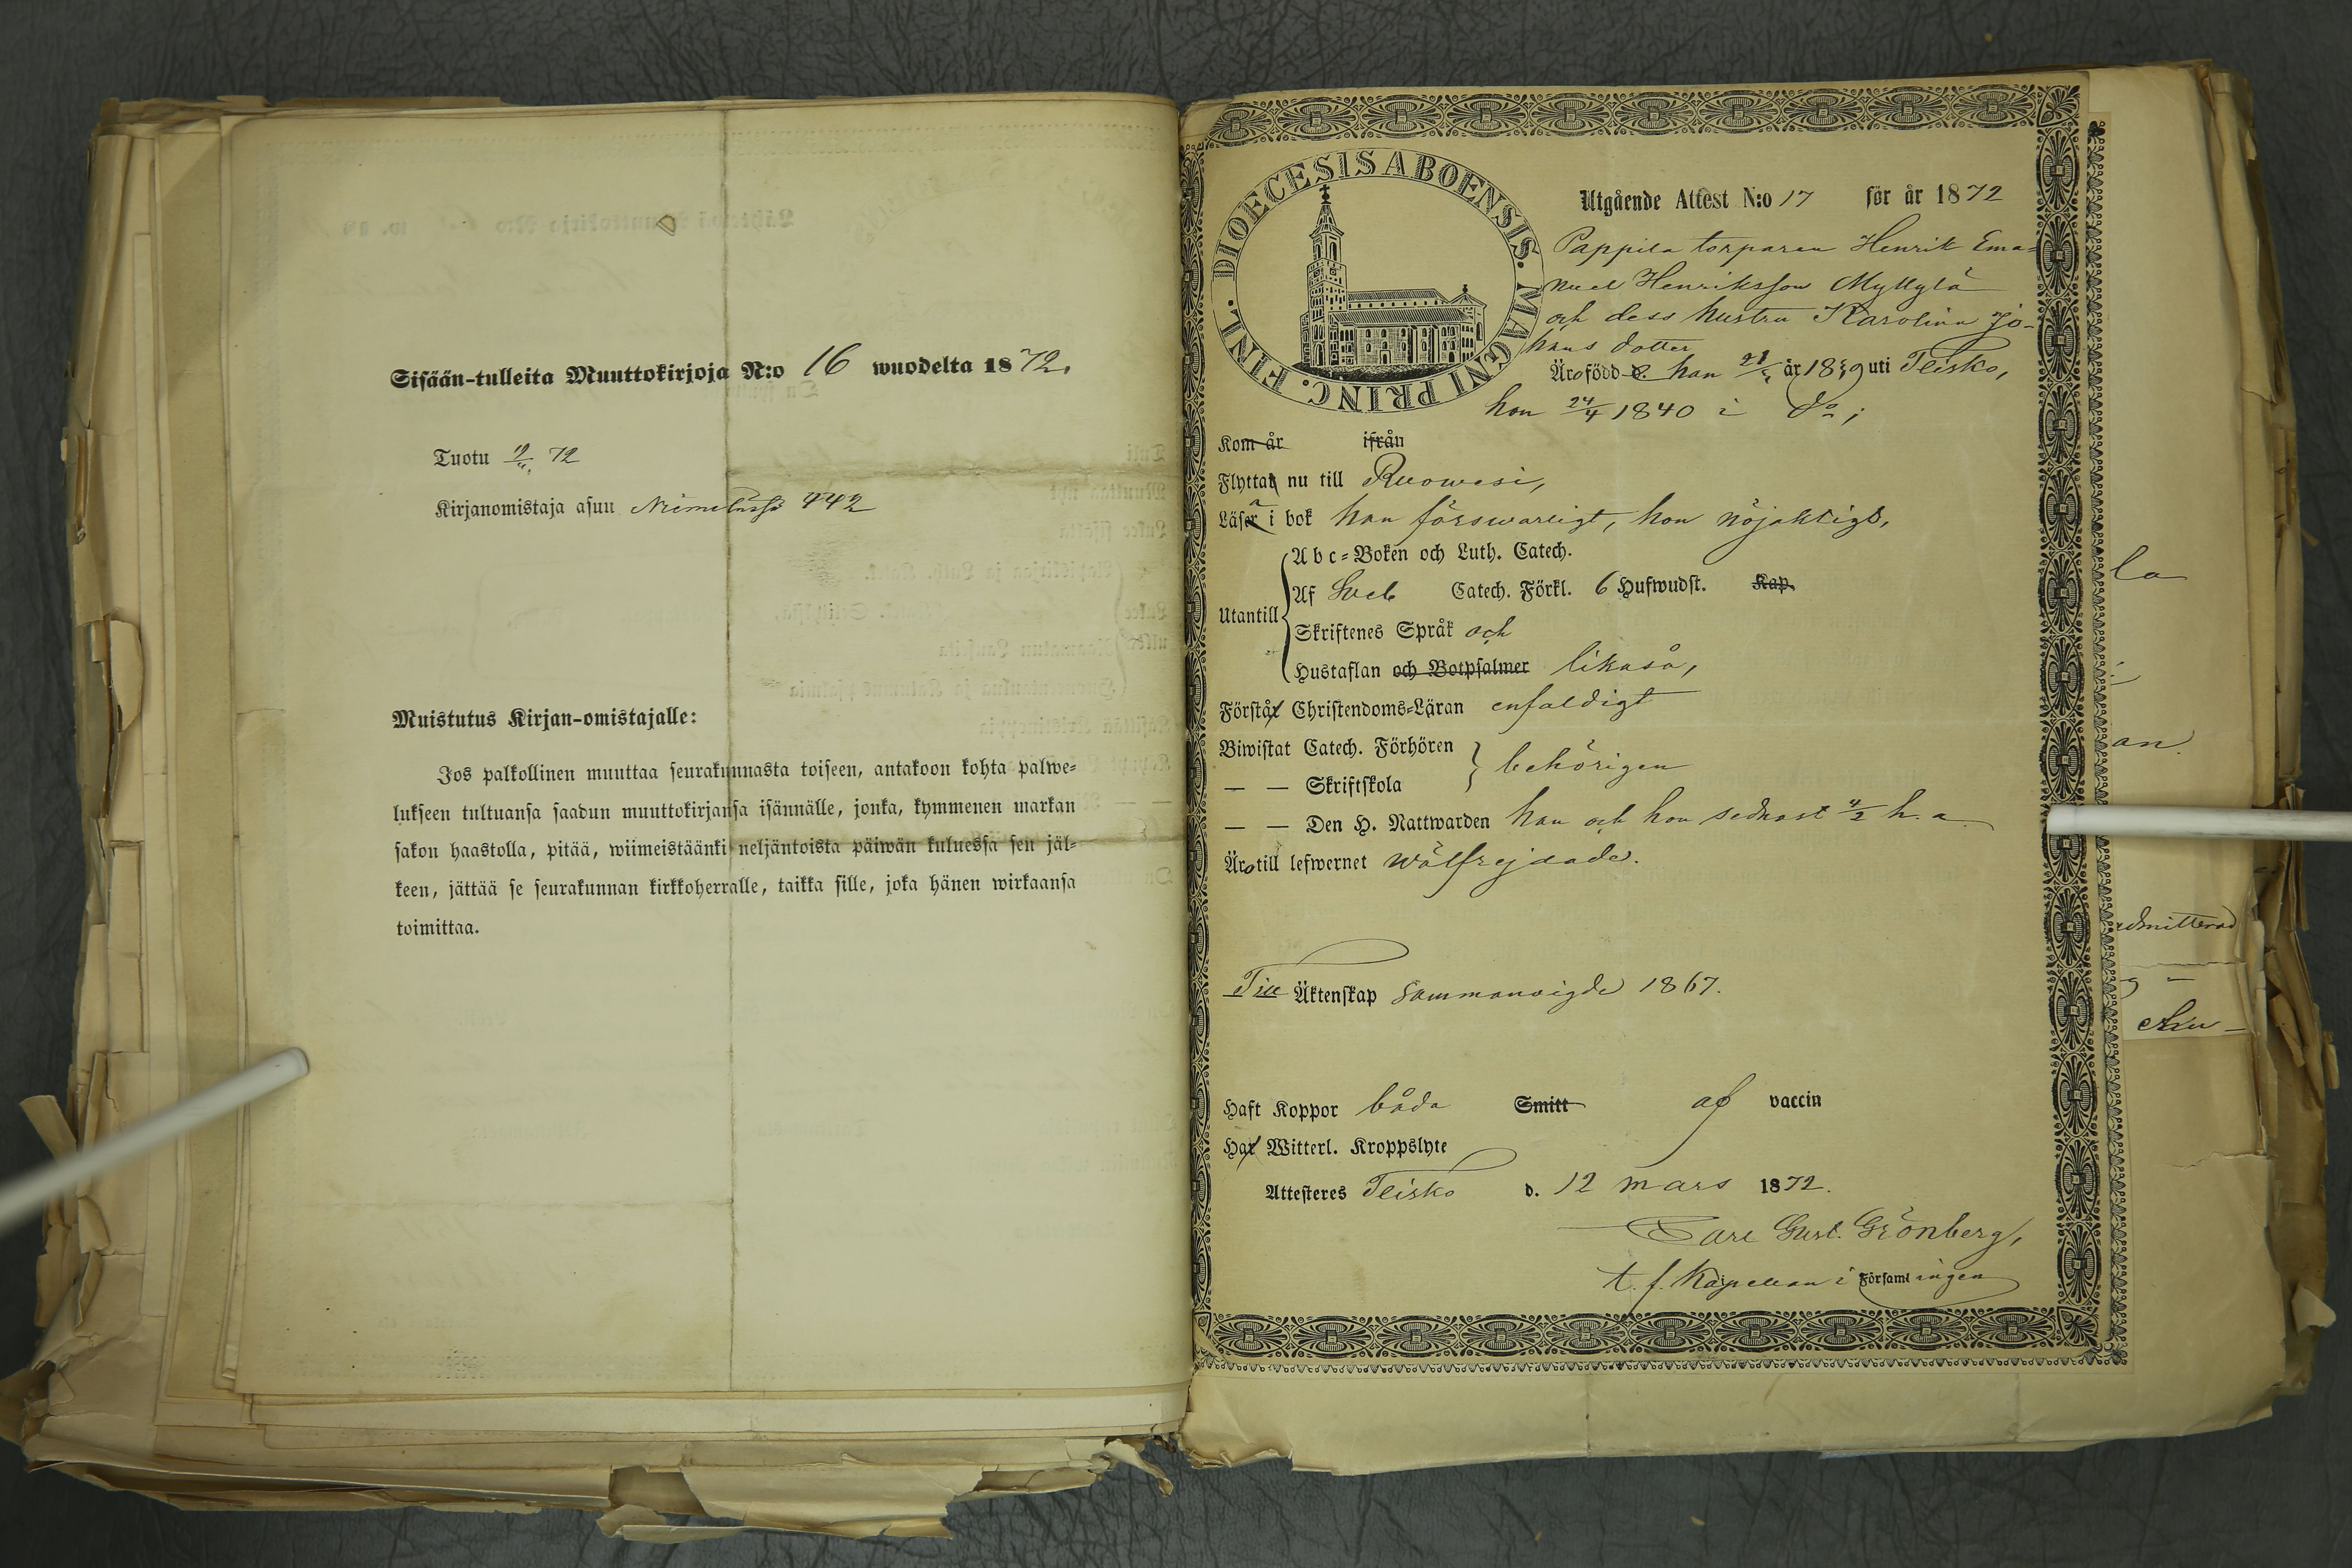 Sisään-tulleita Muuttokirjoja N:o 16 wuodelta 1872.
Tuotu 72
Kirjanomistaja asuu 442
Muistutus Kirjan-omistajalle:
Jos palkollinen muuttaa seurakunnasta toiseen, antakoon kohta palwe-
lukseen tultuansa saadun muuttokirjansa isännälle, jonka, kymmenen markan
sakon haastolla, pitää, wiimeistäänki neljäntoista päiwän kuluessa sen jäl-
keen, jättää se seurakunnan kirkkoherralle, taikka sille, joka hänen wirkaansa
toimittaa.
DIOECESIS ABOENSIS. MAGNI PRINC. FINL.
Utgående Attest N:o 17 för år 1872
Pappila torparen Henrik Ema-
nuel Henriksson Myllylä
och dess hustru Karolina Jo-
hans dotter
Äro född d. han år 18 9 uti Teisko,
hon 24/4 1840 i do;
Kom år ifrån
Flyttar nu till Ruowesi,
Läsa i bok han förswarligt, hon nöjaktigt,
Utantill
Abc-Boken och Luth. Catech.
Af Sveb Catech. Förkl. 6 Hufwudst. Kap.
Skriftenes Språk och
Hustaflan och Botpsalmer likaså,
Förstår Christendoms-Läran enfaldigt
Biwistat Catech. Förhören
— — Skriftskola } behörigen
— — Den H. Nattwarden han och hon sednast 4/2 h. a.
Äro till lefwernet wälfrejdade.
Till Äktenskap sammanvigde 1867.
Haft Koppor båda Smitt af vaccin
Har Witterl. Kroppslyte
Attesteres Teisko d. 12 mars 1872.
Carl Gust. Grönberg,
t. f. Kapellan i Församlingen
la
an.
admitterad